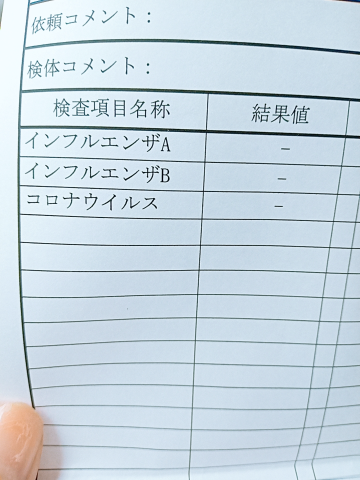 依頼コメント：
検体コメント：
検査項目名称 結果値
インフルエンザA −
インフルエンザB −
コロナウイルス −